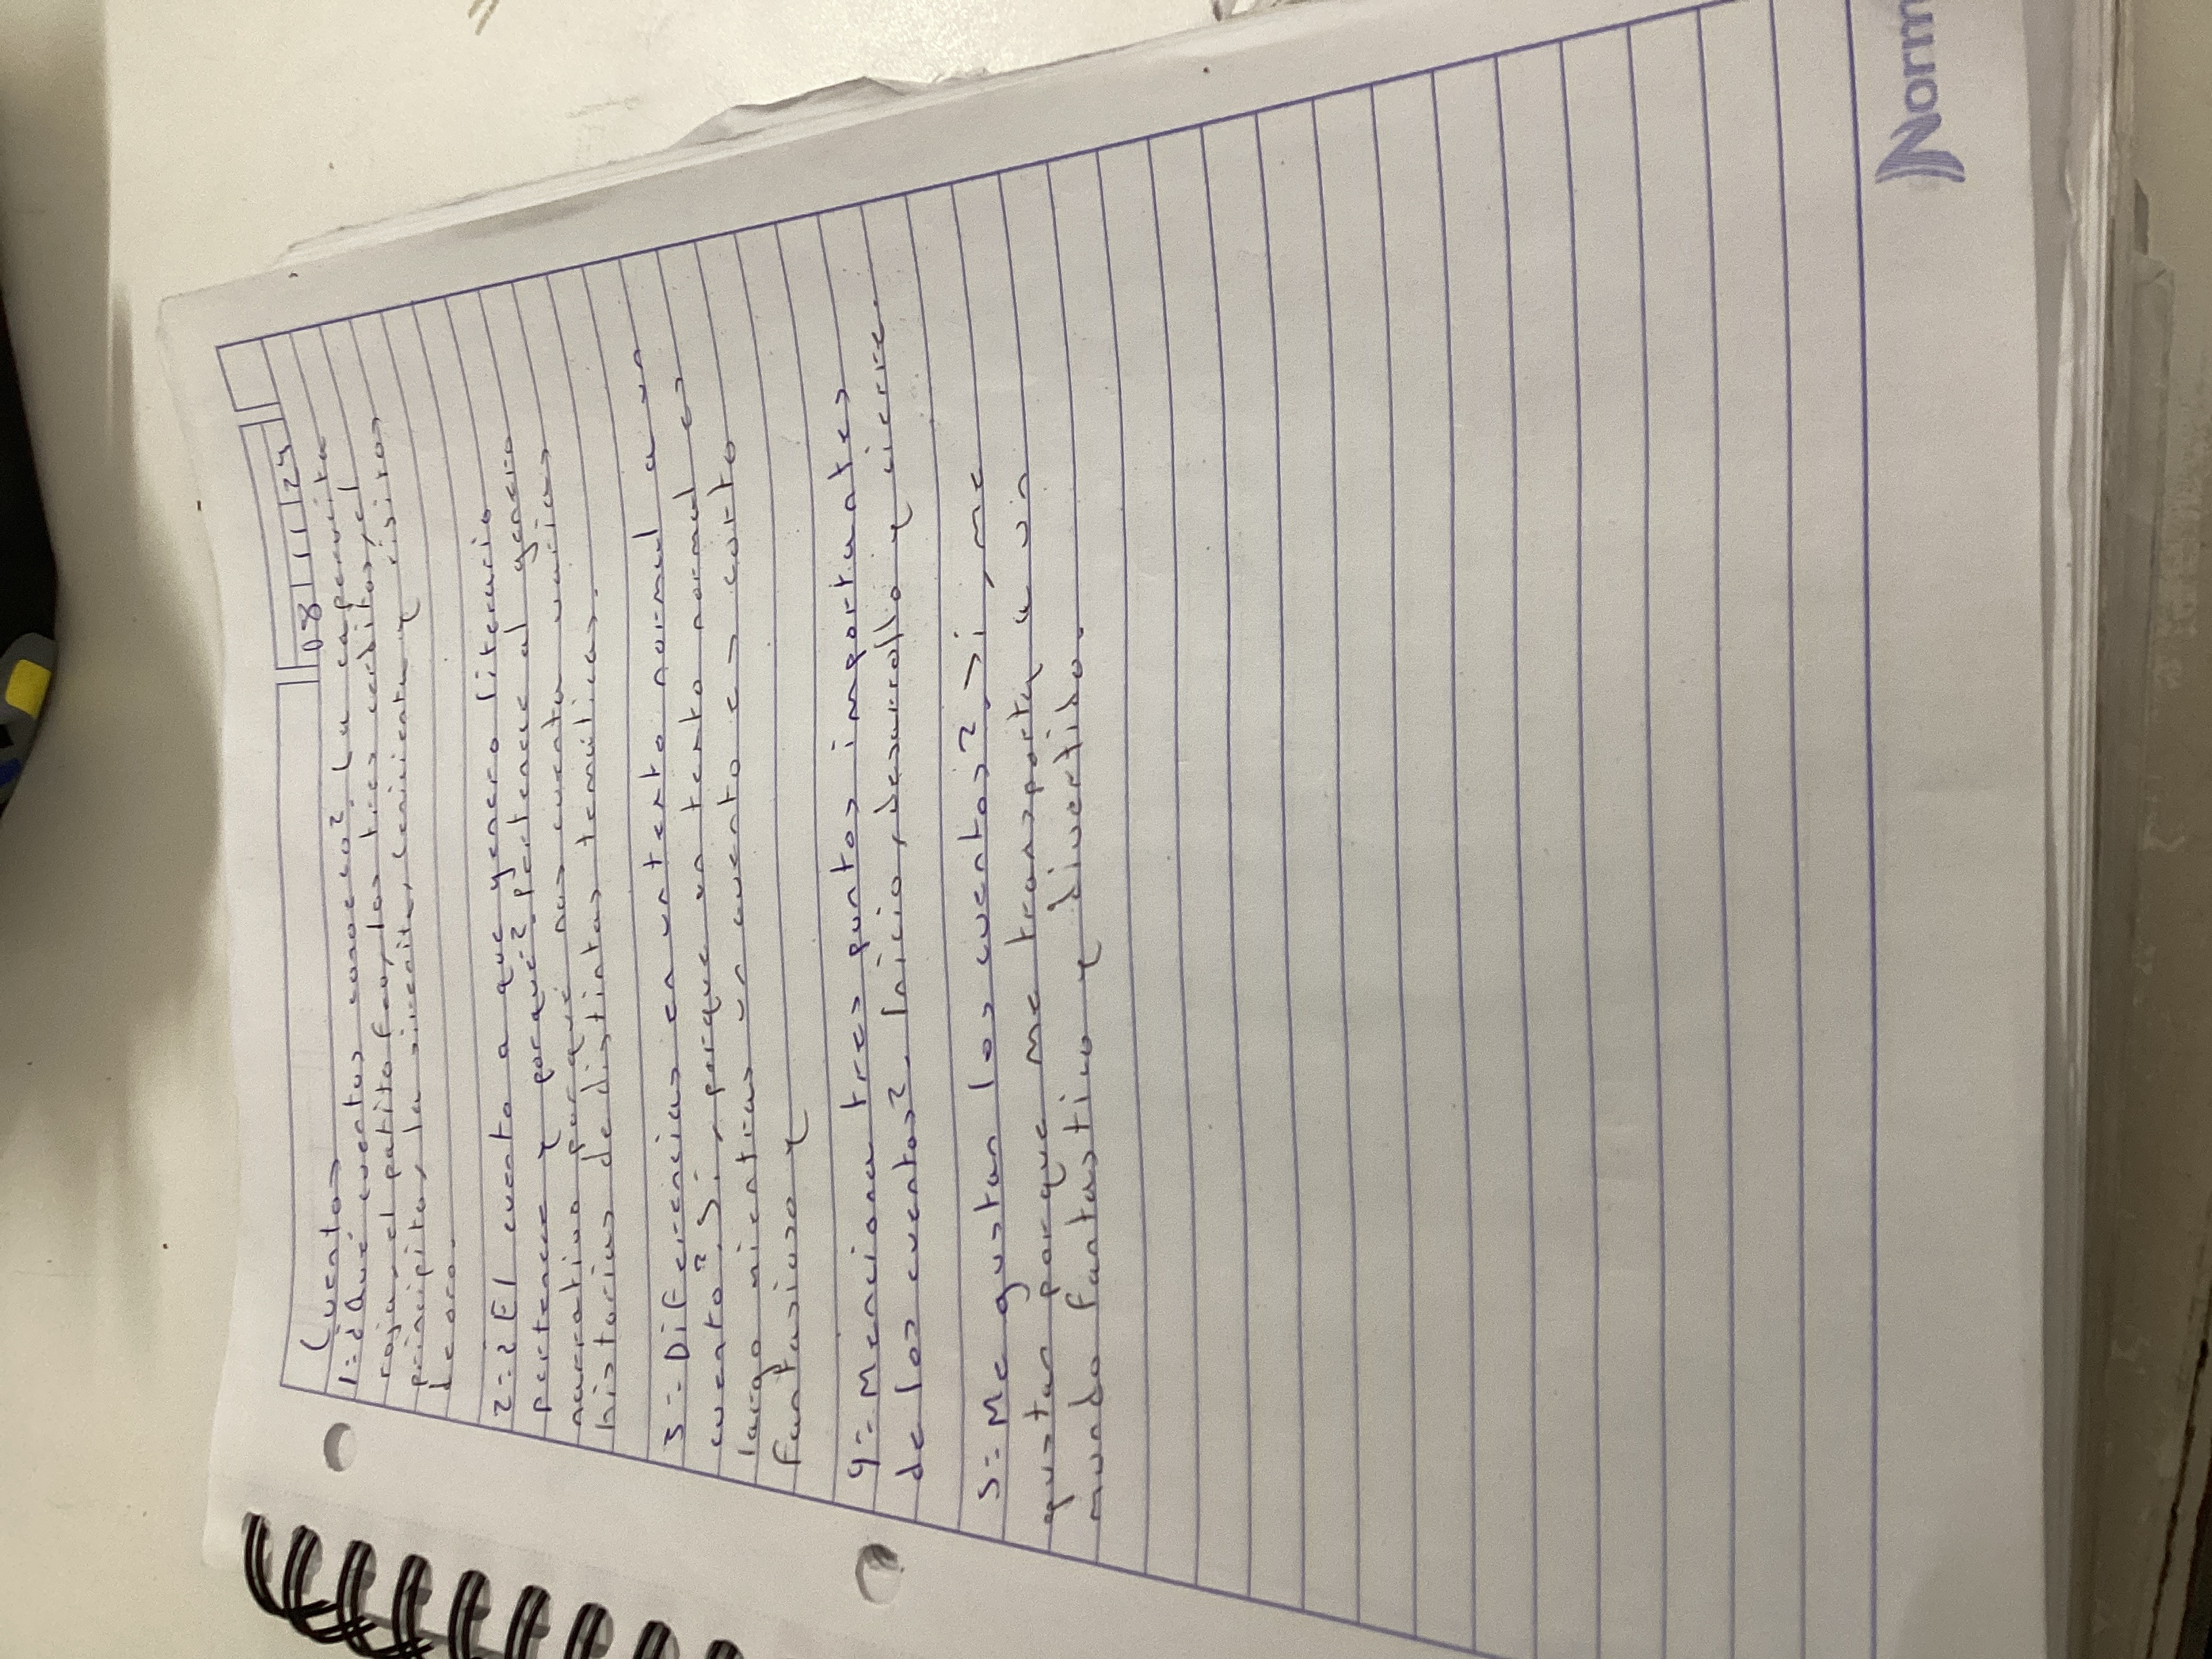 08 11 24
Cuentos
1:-¿Qué cuentos conoces? La caperucita
roja, el patito feo, los tres cerditos, el
principito, la sirenita, cenicienta y ricitos
de oro.
2:-¿El cuento a que genero literario
pertenece y porqué? pertenece al genero
narrativo porque nos cuenta varias
historias de distintas temáticas.
3:-Diferencias en un texto normal a un
cuento? Si, porque un texto normal es
largo mientras un cuento es corto
fantasioso y
4:-Menciona tres puntos importantes
de los cuentos?. Inicio, desarrollo y cierre.
5:-Me gustan los cuentos?, si, me
gustan porque me transporta a un
mundo fantastico y divertido.
Norm